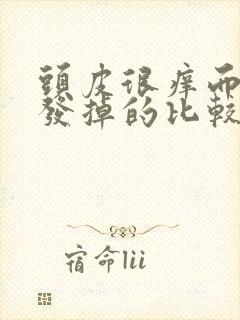 頭皮很痒而
發掉的比較
宿命lii